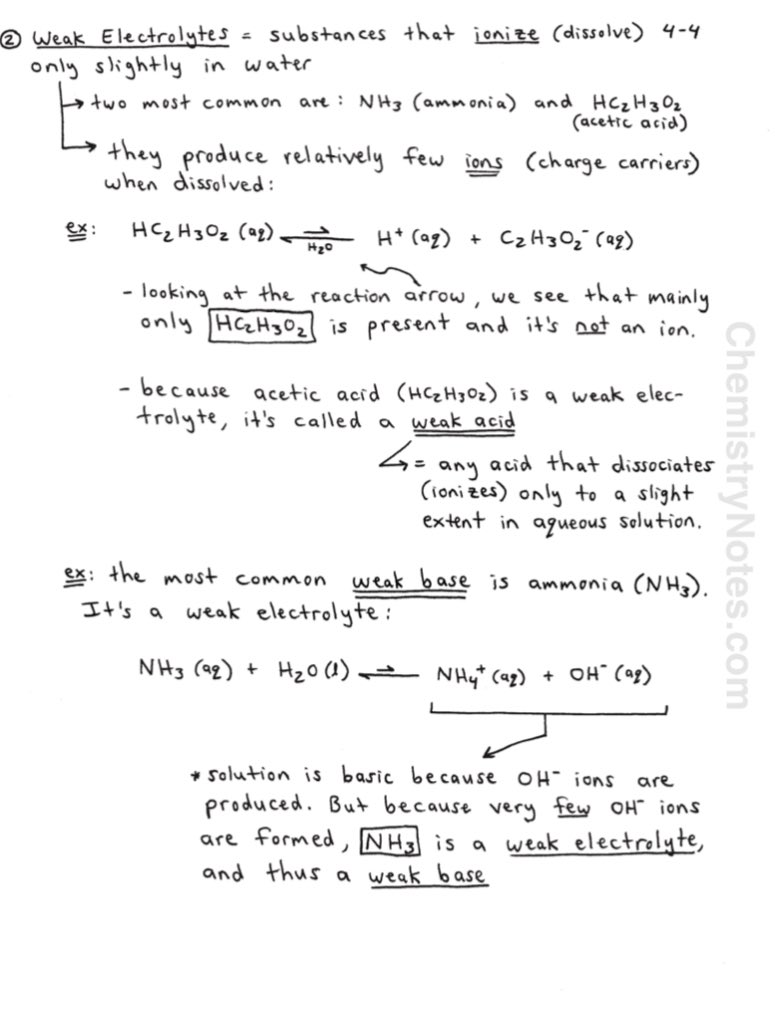 ② Weak Electrolytes = substances that ionize (dissolve) 4-4
only slightly in water
→ two most common are: NH₃ (ammonia) and HC₂H₃O₂
(acetic acid)
→ they produce relatively few ions (charge carriers)
when dissolved:
ex: HC₂H₃O₂ (aq) ⇌ H⁺ (aq) + C₂H₃O₂⁻ (aq)
H₂O
- looking at the reaction arrow, we see that mainly
only HC₂H₃O₂ is present and it's not an ion.
- because acetic acid (HC₂H₃O₂) is a weak elec-
trolyte, it's called a weak acid
↳ = any acid that dissociates
(ionizes) only to a slight
extent in aqueous solution.
ex: the most common weak base is ammonia (NH₃).
It's a weak electrolyte:
NH₃ (aq) + H₂O (l) ⇌ NH₄⁺ (aq) + OH⁻ (aq)
* solution is basic because OH⁻ ions are
produced. But because very few OH⁻ ions
are formed, NH₃ is a weak electrolyte,
and thus a weak base
ChemistryNotes.com